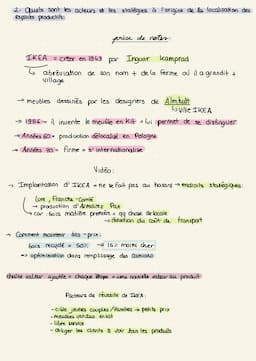 2- Quels sont les acteurs et les stratégies à l'origine de la localisation des
espaces productifs.
prise de notes
IKEA = créer en 1943 par Ingvar Kamprad
↳ abréviation de son nom + de la ferme où il a grandit +
village
→ meubles dessinés par les designers de Älmhult
↳ Ville IKEA
→ 1956 = il invente le meuble en kit = lui permet de se distinguer
→ Années 60 = production délocalisé en Pologne
→ Années 70 = firme s'internationalise
Vidéo :
→ Implantation d'IKEA = ne se fait pas au hasard → endroits stratégiques
Jura, Franche-Comté
→ production d'Armoires Pax
↳ car : bois matière première = qq chose de locale
→ réduction du coût de transport
→ Comment maintenir des prix :
bois recyclé = 50% → 15% moins cher
=> optimisation dans remplissage des camions
chaîne valeur ajoutée = chaque étape = une nouvelle valeur au produit
Facteurs de réussite de Ikea :
- cible jeunes couples / familles → petits prix
- meubles vendus en kit
- libre service
- obliger les clients à voir tous les produits